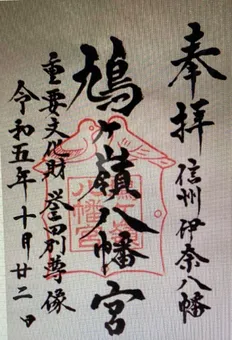 奉拝
信州伊奈八幡
鳩ヶ嶺八幡宮
重要文化財 誉田別尊像
令和五年十月廿二日